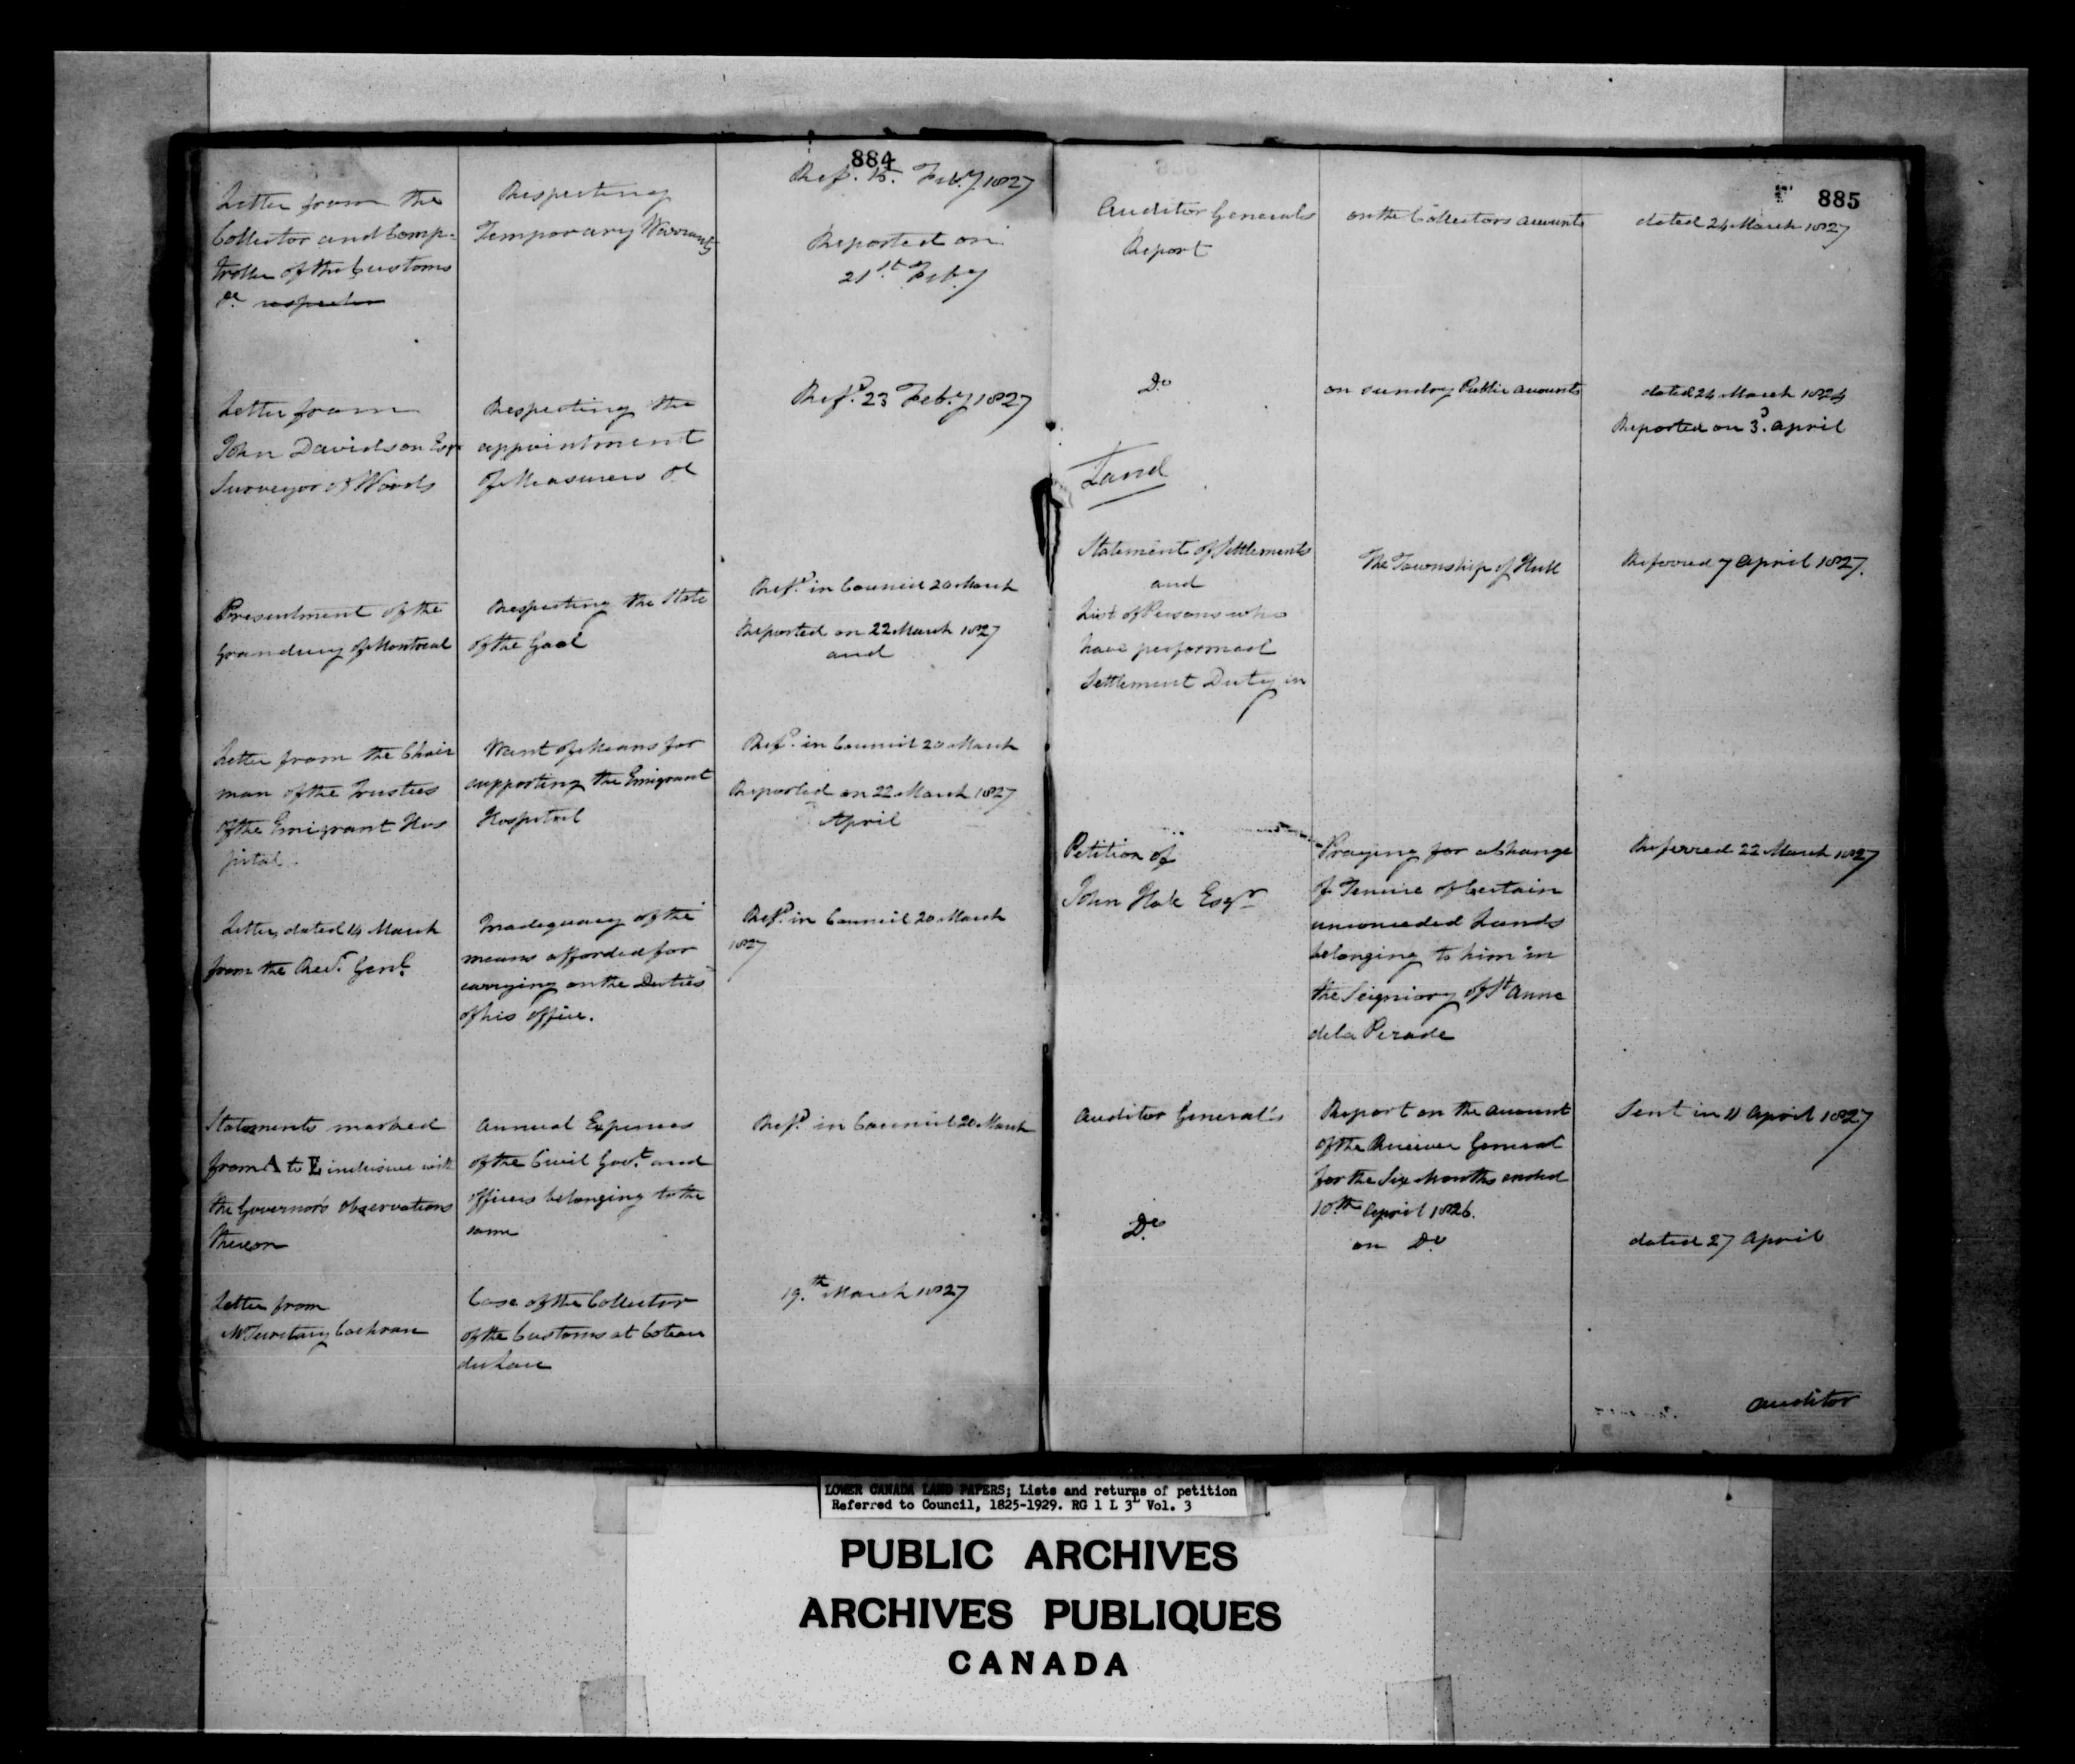 884
Letter from the
Collector and Comp-
troller of the Customs
&c respecter
Respecting
Temporary Warrants
Ref. 15. Feby 1827
Reported on
21st Feby
Letter from
John Davidson Esqr
Surveyor of Woods
Respecting the
appointment
of Measurers &c
Refd. 23 Feby 1827
Presentment of the
Grandjury of Montreal
Respecting the State
of the Gaol
Refd. in Council 20 March
Reported on 22 March 1827
and
Letter from the Chair
man of the Trustees
of the Emigrant Hos
pital.
Want of Means for
supporting the Emigrant
Hospital
Refd. in Council 20 March
Reported on 22 March 1827
April
Letter, dated 14 March
from the Recr. Genl.
Inadequacy of the
means afforded for
carrying on the Duties
of his office.
Refd. in Council 20 March
1827
Statements marked
from A to E inclusive with
the Governor's observations
thereon
Annual Expenses
of the Civil Govt. and
officers belonging to the
same
Refd. in Council 20 March
Letter from
Mr Secretary Cochran
Case of the Collector
of the Customs at Coteau
du Lac
19th March 1827
885
Auditor Generals
Report
on the Collectors Accounts
dated 24 March 1827
Do
on sundry Public Accounts
dated 24 March 1824
Reported on 3d. April
Land
Statement of Settlements
and
List of Persons who
have performed
Settlement Duty in
The Township of Hull
Referred 7 April 1827.
Petition of
John Hale Esqr
Praying for a Change
of Tenure of Certain
unconceded Lands
belonging to him in
the Seigniory of St Anne
de la Perade
Referred 22 March 1827
Auditor General's
Report on the Account
of the Receiver General
for the Six Months ended
10th April 1826.
Sent in 11 April 1827
Do
on Do
dated 27 April
Auditor
LOWER CANADA LAND PAPERS; Lists and returns of petition
Referred to Council, 1825-1929. RG 1 L 3L Vol. 3
PUBLIC ARCHIVES
ARCHIVES PUBLIQUES
CANADA